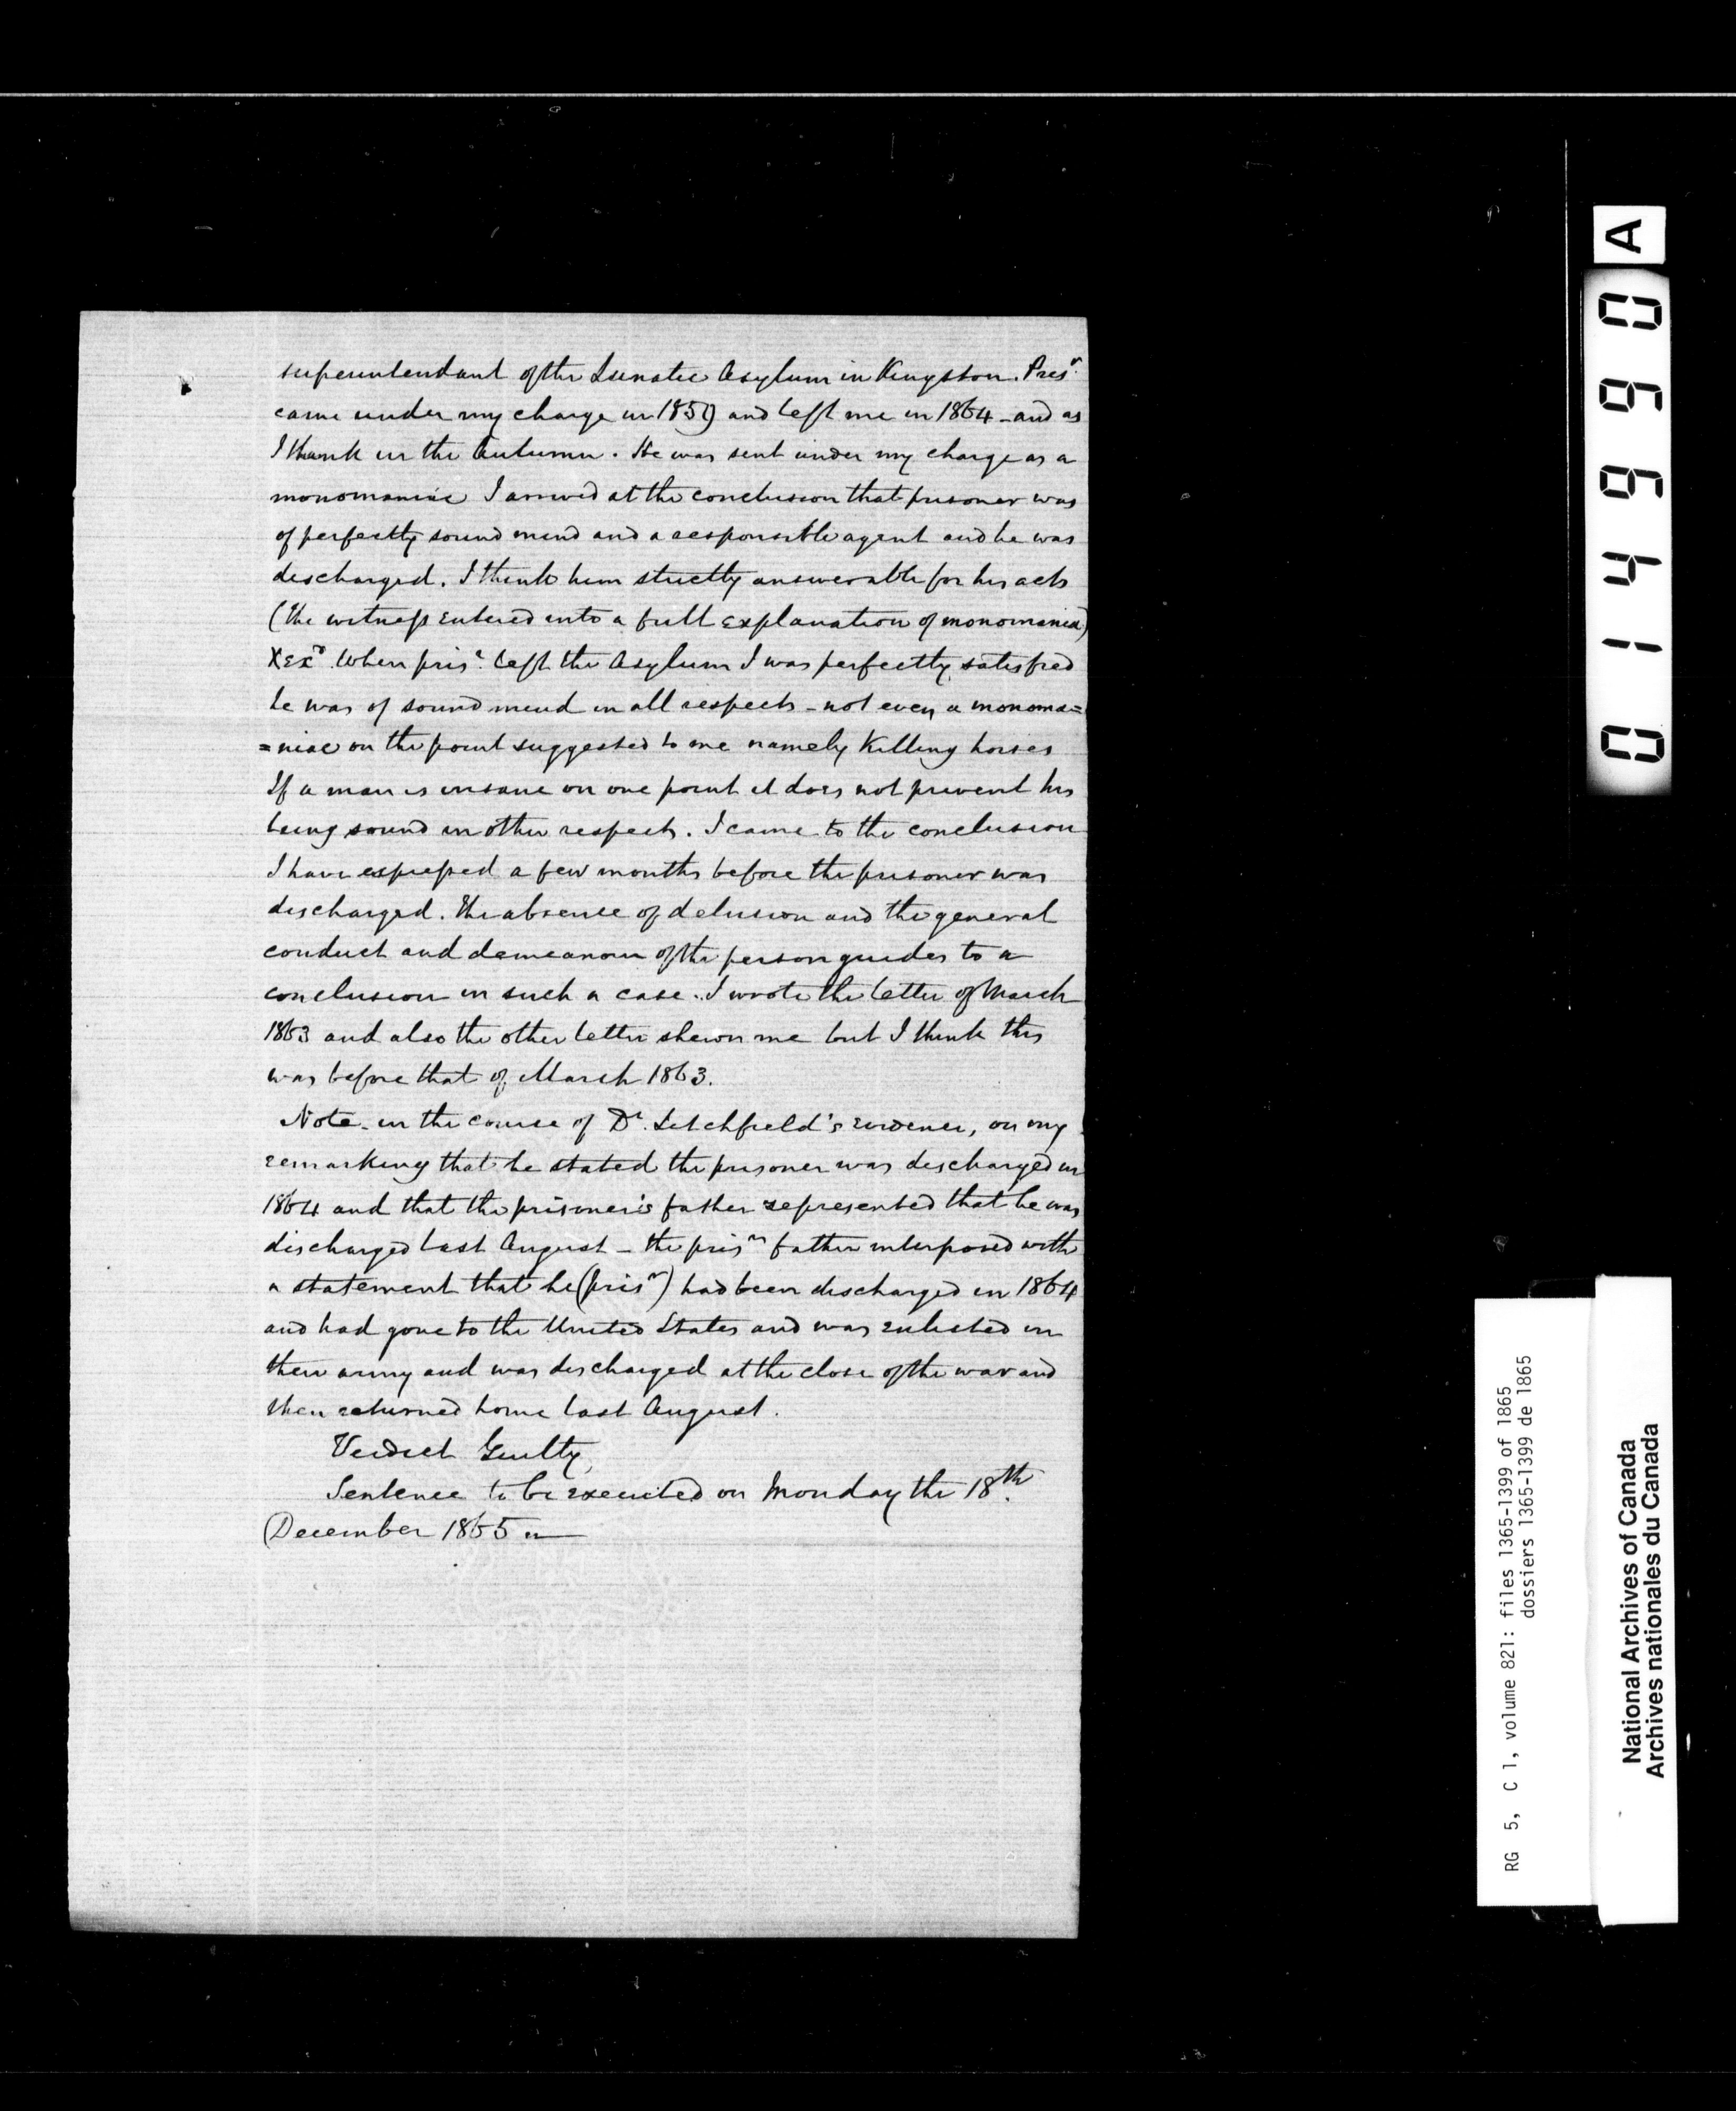 superintendant of the Lunatic Asylum in Kingston. Pris^r
came under my charge in 1859 and left me in 1864 - and as
I thank in the Autumn. He was sent under my charge as a
monomaniac I arrived at the conclusion that prisoner was
of perfectly sound mind and a responsible agent and he was
discharged. I think him strictly answerable for his acts
(the witness entered into a full explanation of monomania)
XEx^d. When pris^r. left the Asylum I was perfectly satisfied
he was of sound mind in all respects - not even a monoma=
=niac on the point suggested to me namely Killing horses
If a man is insane on one point it does not prevent his
being sound in other respects. I came to the conclusion
I have expressed a few months before the prisoner was
discharged. The absence of delusion and the general
conduct and demeanour of the person guides to a
conclusion in such a case. I wrote the letter of March
1863 and also the other letter shewn me but I think this
was before that of March 1863.
Note - in the course of D^r. Litchfield's evidence, on my
remarking that he stated the prisoner was discharged in
1864 and that the prisoner's father represented that he was
discharged last August - the pris^rs father interposed with
a statement that he (pris^r) had been discharged in 1864
and had gone to the United States and was enlisted in
their army and was discharged at the close of the war and
then returned home last August.
Verdict Guilty
Sentence to be executed on Monday the 18^th.
December 1865
A
014990
RG 5, C 1, volume 821: files 1365-1399 of 1865
dossiers 1365-1399 de 1865
National Archives of Canada
Archives nationales du Canada